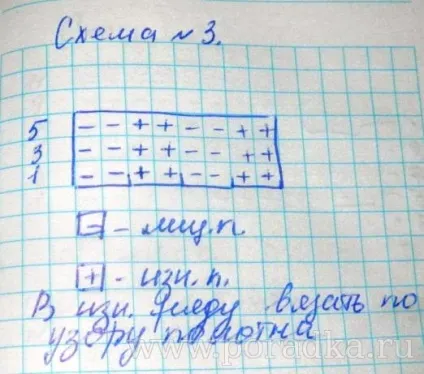 Схема № 3.
5 - - + + - - + +
3 - - + + - - + +
1 - - + + - - + +
- - лиц.п.
+ - изн.п.
В изн. ряду вязать по
узору полотна
www.poradka.ru